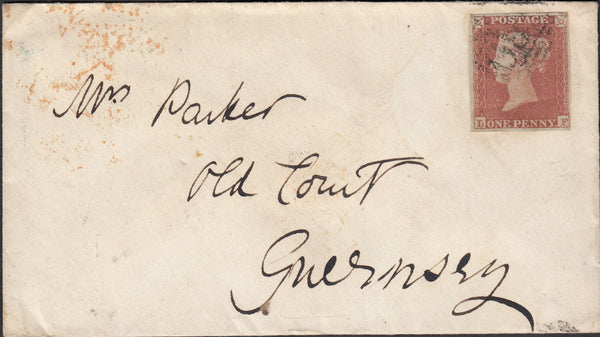 POSTAGE
ONE PENNY
Mrs Parker
Old Court
Guernsey